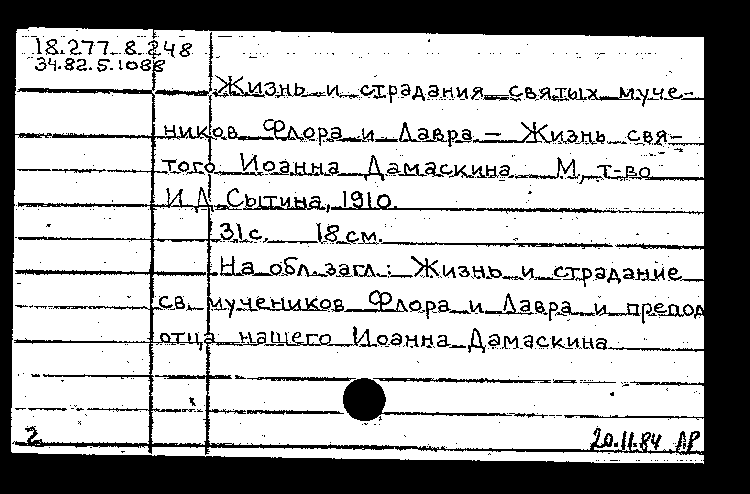 18.277.8.248
34.82.5.1088
Жизнь и страдания святых муче-
ников Флора и Лавра – Жизнь свя-
того Иоанна Дамаскина М, т-во
И Д Сытина, 1910.
31с. 18 см.
На обл. загл.: Жизнь и страдание
св. мучеников Флора и Лавра и препод
отца нашего Иоанна Дамаскина
2 20.11.84 ЛР